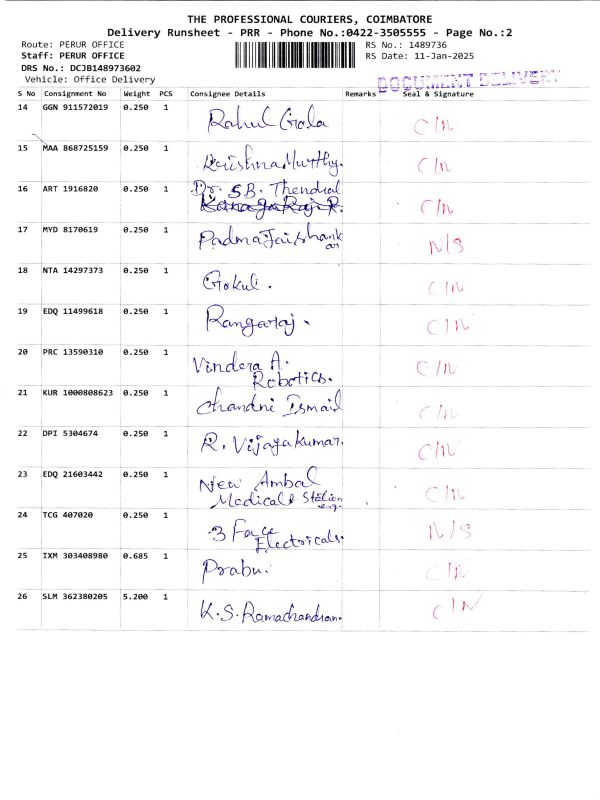 THE PROFESSIONAL COURIERS, COIMBATORE
Delivery Runsheet - PRR - Phone No.:0422-3505555 - Page No.:2
Route: PERUR OFFICE RS No.: 1489736
Staff: PERUR OFFICE RS Date: 11-Jan-2025
DRS No.: DCJB148973602
Vehicle: Office Delivery
DOCUMENT DELIVERY
S No Consignment No Weight PCS Consignee Details Remarks Seal & Signature
14 GGN 911572019 0.250 1 Rahul Gala C/N
15 MAA 868725159 0.250 1 KrishnaMurthy. C/N
16 ART 1916820 0.250 1 Dr. S.B. Thendral C/N
KanagaRaj.R.
17 MYD 8170619 0.250 1 PadmaJaishank N/S
an
18 NTA 14297373 0.250 1 Gokul. C/N
19 EDQ 11499618 0.250 1 Rangaraj. C/N
20 PRC 13590310 0.250 1 Vindera A. C/N
Robotics.
21 KUR 1000808623 0.250 1 Chandni Ismail C/N
22 DPI 5304674 0.250 1 R. Vijayakumar. C/N
23 EDQ 21603442 0.250 1 New Ambal C/N
Medicals
24 TCG 407020 0.250 1 3 Face N/S
Electricals.
25 IXM 303408980 0.685 1 Prabu. C/N
26 SLM 362380205 5.200 1 K.S.Ramachandran. C/N